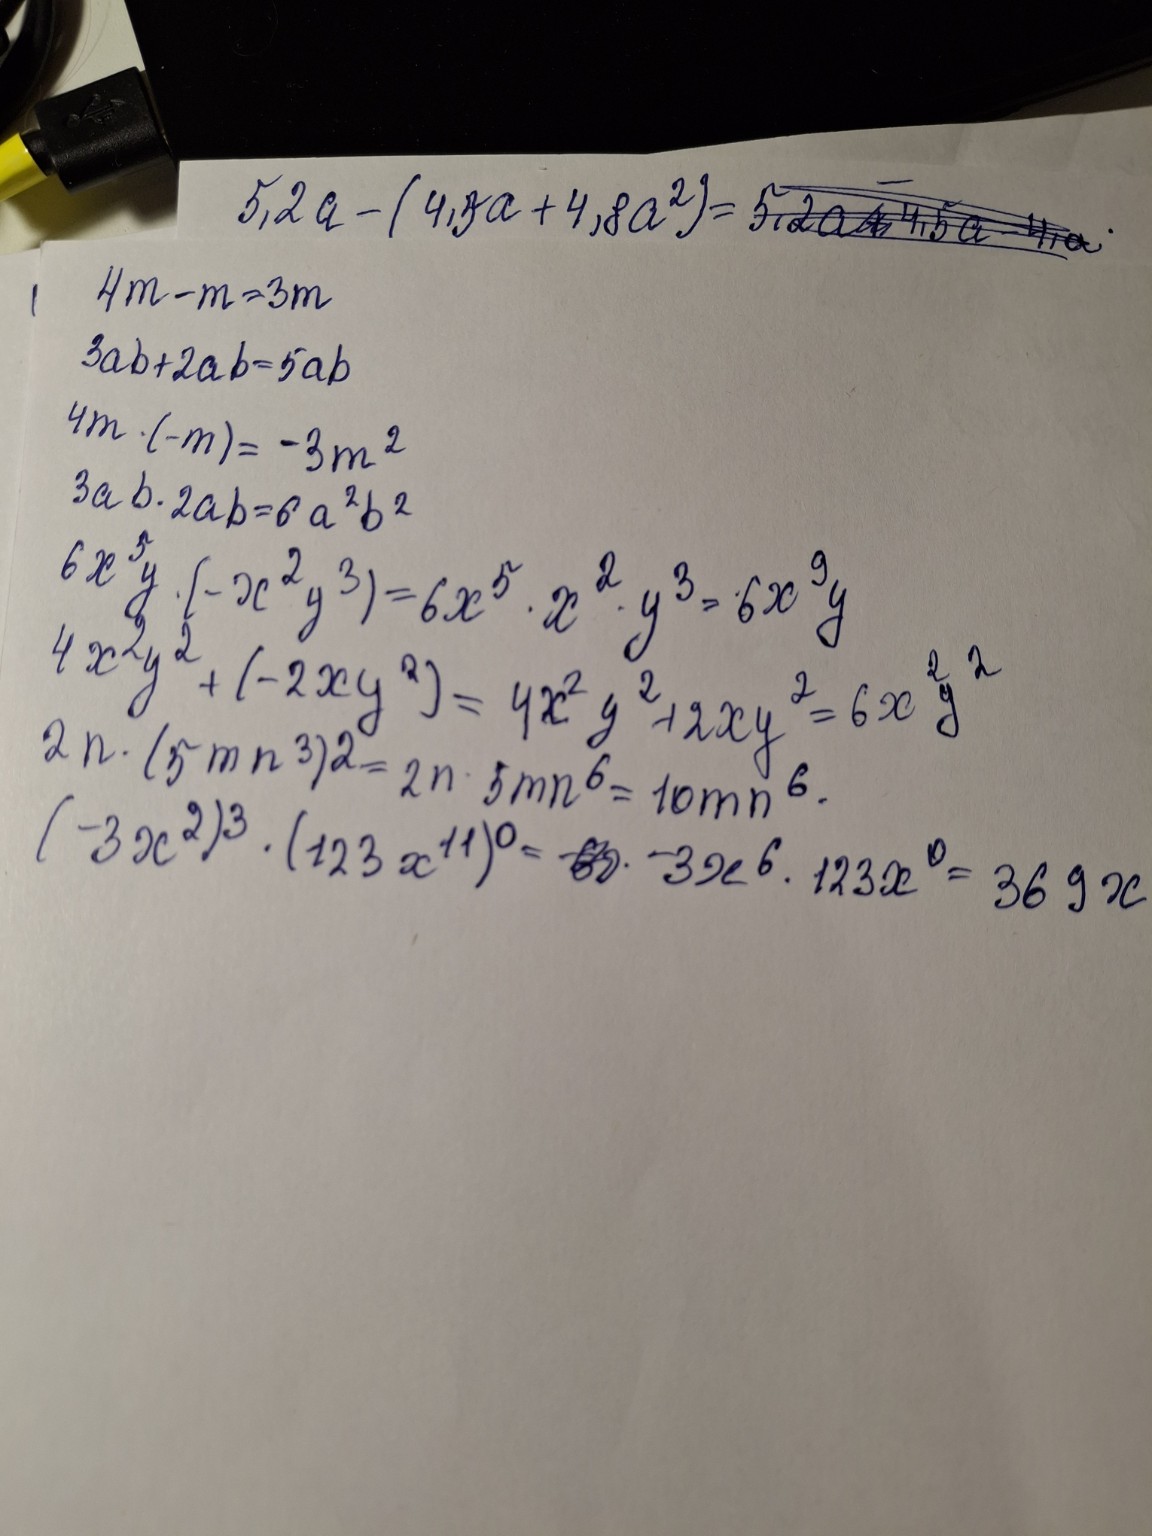 5,2a - (4,5a + 4,8a²) = 5,2a 4,5a - 4,a
4m - m = 3m
3ab + 2ab = 5ab
4m · (-m) = -3m²
3ab · 2ab = 6a²b²
6x⁵y · (-x²y³) = 6x⁵ · x² · y³ = 6x⁹y
4x²y² + (-2xy²) = 4x²y² + 2xy² = 6x²y²
2n · (5mn³)2 = 2n · 5mn⁶ = 10mn⁶.
(-3x²)³ · (123x¹¹)⁰ = -3x⁶ · 123x⁰ = 369x